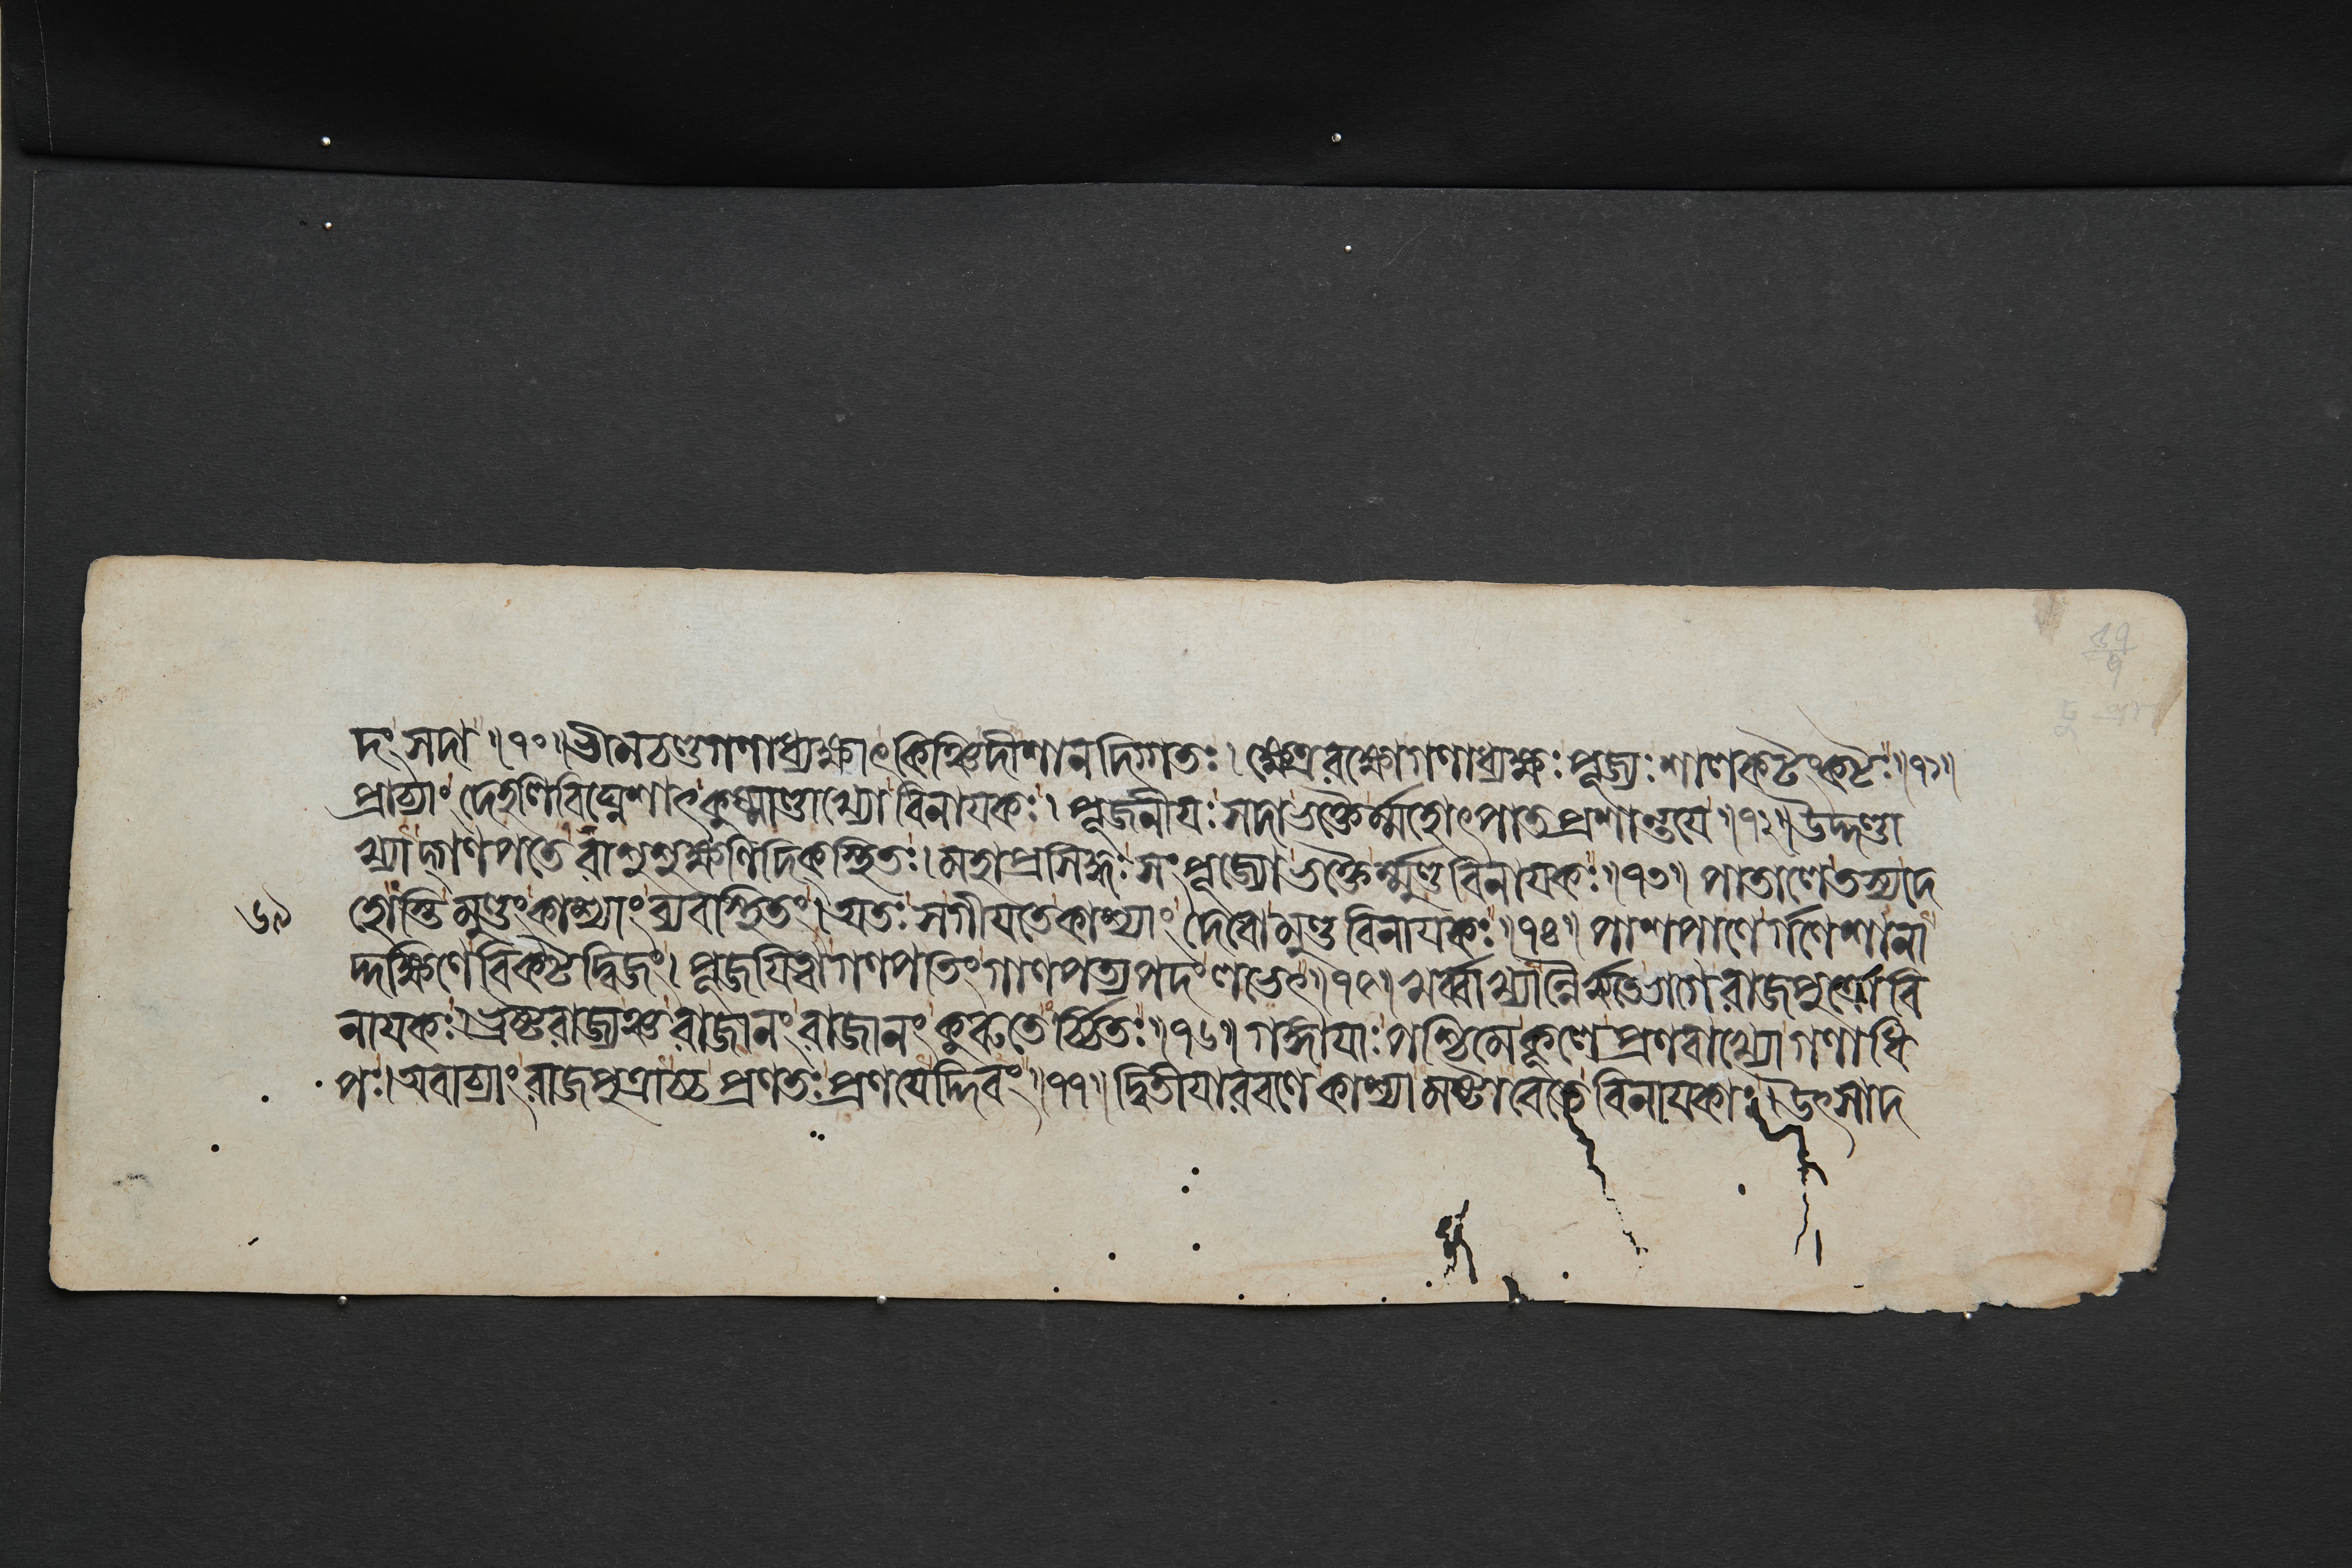 দং সদা ॥ ৭০ ॥ ভীমচণ্ডগণাধ্যক্ষাৎ কিঞ্চিদীশানদিগ্গতঃ । ক্ষেত্ররক্ষোগণাধ্যক্ষঃ পূজ্যঃ শালকটংকটঃ ॥ ৭১ ॥
প্রাচ্যাং দেহলিবিঘ্নেশাৎ কুষ্মাণ্ডাখ্যো বিনায়কঃ । পূজনীয়ঃ সদাভক্তৈর্ম্মহোৎপাতপ্রশান্তয়ে ॥ ৭২ ॥ উদ্দণ্ডা
খ্যাদ্গণপতেরাশুশুক্ষণিদিক্স্থিতঃ । মহাপ্রসিদ্ধঃ সংপূজ্যো ভক্তৈর্ম্মুণ্ডবিনায়কঃ ॥ ৭৩ ॥ পাতালে তস্য দে
৬৯ হোস্তি মুণ্ডং কাশ্যাং ব্যবস্থিতং । অতঃ সগীয়তে কাশ্যাং দেবো মুণ্ডবিনায়কঃ ॥ ৭৪ ॥ পাশপাণের্গণেশানা
দ্দক্ষিণে বিকটদ্বিজং । পূজয়িত্বা গণপতিং গাণপত্যপদং লভেৎ ॥ ৭৫ ॥ খর্ব্বাখ্যান্নৈরৃতেভাগে রাজপুত্রো বি
নায়কঃ । ভ্রষ্টরাজ্যঞ্চ রাজানং রাজানং কুরুতের্চ্চিতঃ ॥ ৭৬ ॥ গঙ্গায়াঃ পশ্চিমে কূলে প্রণবাখ্যো গণাধি
পঃ । অবাচ্যাং রাজপুত্রাচ্চ প্রণতঃ প্রণয়েদ্দিবং ॥ ৭৭ ॥ দ্বিতীয়াবরণে কাশ্যামষ্টাবেতে বিনায়কাঃ । উৎসাদ